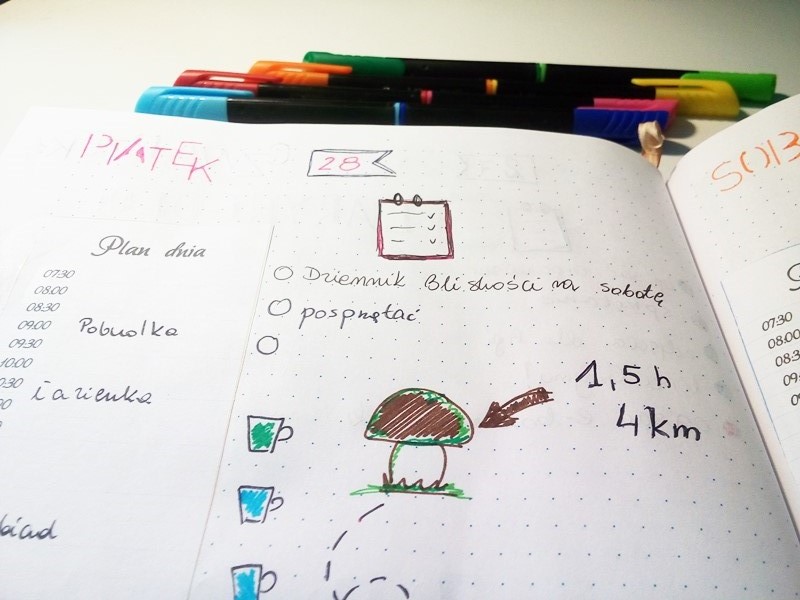 PIĄTEK
28
SOB
Plan dnia
07:30
08:00
08:30
09:00 Pobudka
09:30
10:00
0:30 łazienka
00
biad
Dziennik Bliskości na sobotę
posprzątać
1,5 h
4 km
07:30
08:00
08:3
09:
09